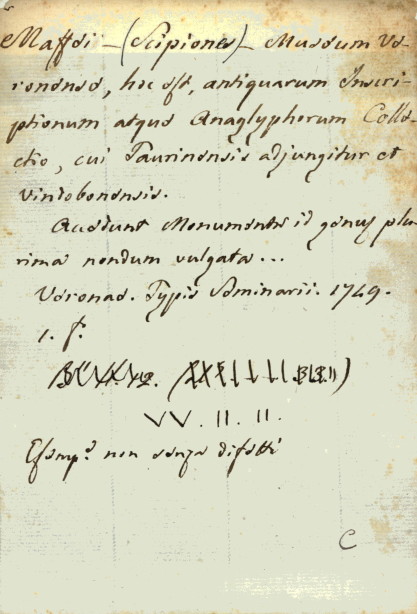 Maffei - (Scipiones) - Museum Ve-
ronense, hoc est, antiquarum Inscri-
ptionum atque Anaglyphorum Colle-
ctio, cui Taurinensis adjungitur et
Vindobonensis.
Accedunt Monumenta id genus plu-
rima nondum vulgata...
Veronae. Typis Seminarii. 1749.
1. f.
VV. II. II.
Esemp.e non senza difetti
C